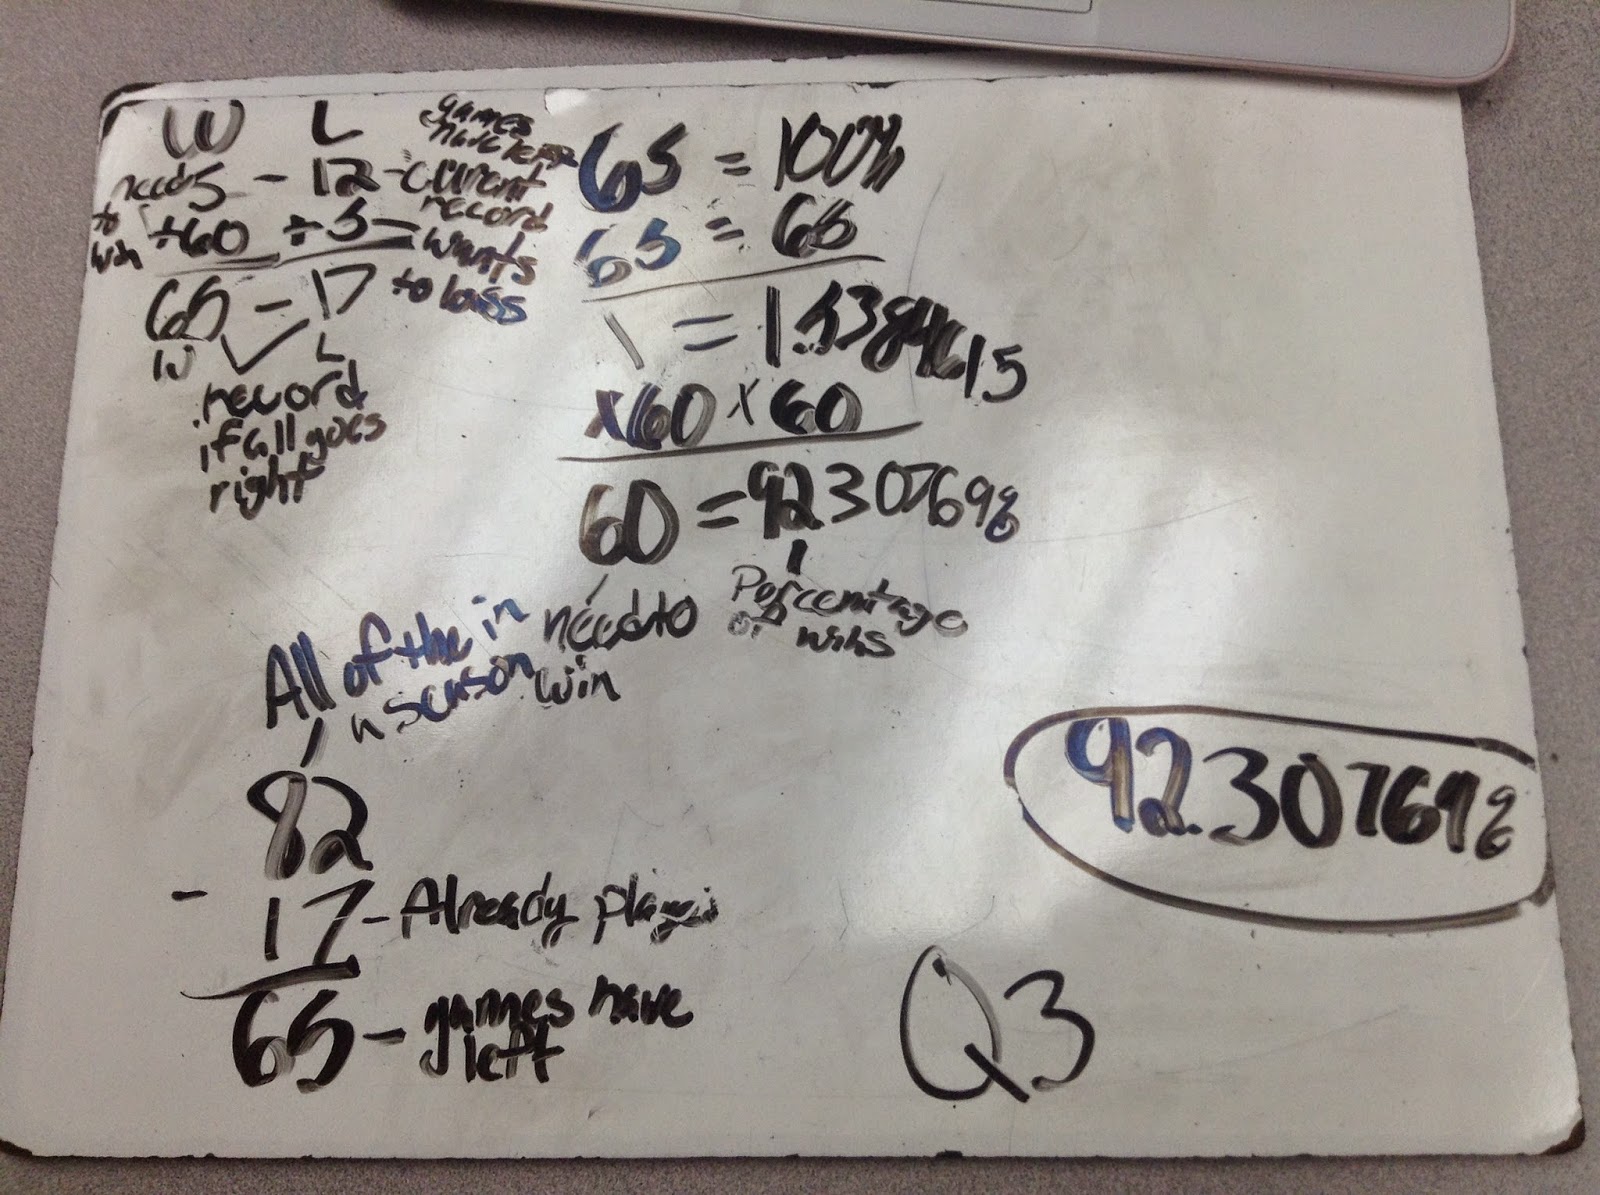 W L games
have left
needs 5 - 12 - current
to record
win +60 +5 - wants
65 - 17 to loss
W L
record
if all goes
right
65 = 100%
65 = 65
1 = 1.538461 5
x60 x60
60 = 92.30769%
All of the in need to Percentage
a season win of wins
82
- 17 - Already
65 - games have
left
92.30769%
Q3